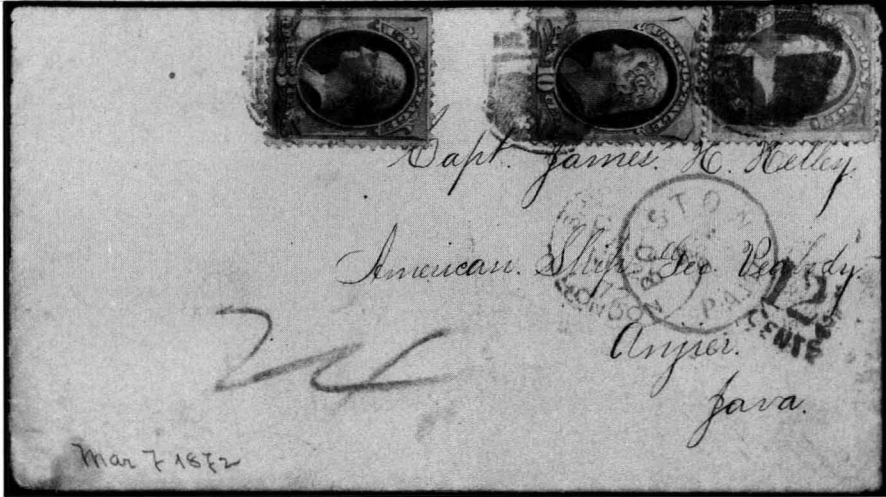 Capt. James. H. Kelley
American. Ship. Geo. Peabody
Anjier.
Java.
BOSTON
PAID
LONDON
PAID
12
CENTS
24
10
Mar 7 1872